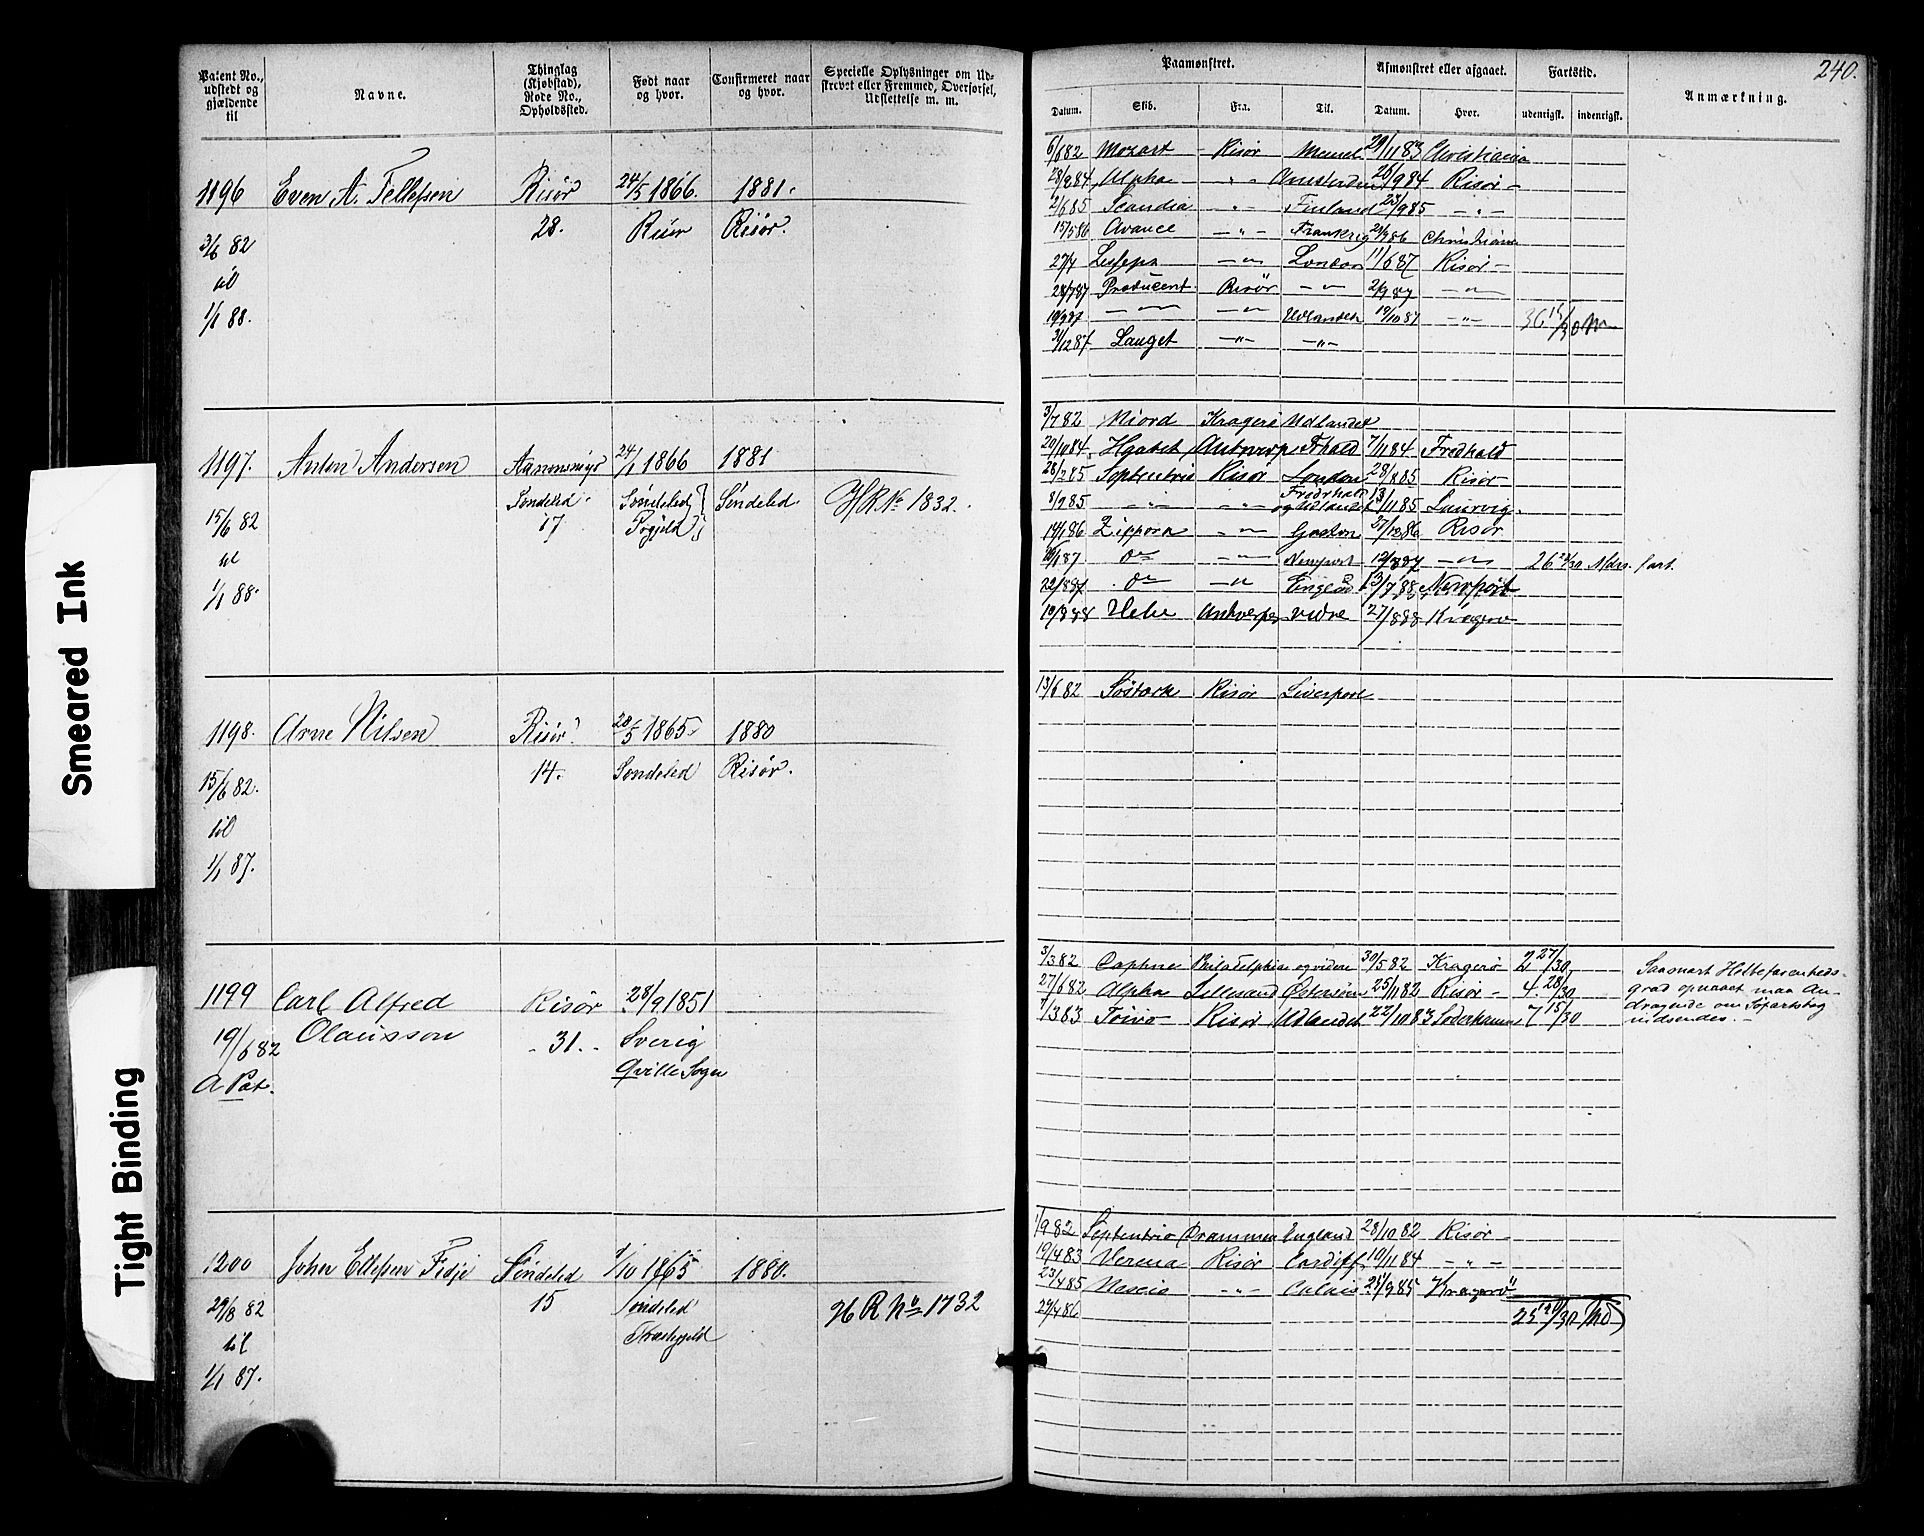 240.
Patent No., udstedt og gjældende til
Navne.
Thinglag (Kjøbstad), Rode No., Opholdssted.
Født naar og hvor.
Confirmeret naar og hvor.
Specielle Oplysninger om Udskrevet eller Fremmed, Overførsel, Udslettelse m. m.
Paamønstret.
Datum.
Skib.
Fra.
Til.
Afmønstret eller afgaaet.
Datum.
Hvor.
Fartstid.
udenrigsk.
indenrigsk.
Anmærkning.
1196 Even A. Tellefsen Risør 24/5 1866. 1881.
28. Risør Risør.
3/6 82
til
1/1 88.
6/6 82 Mozart Risør Memel 29/11 83 Christiania
28/2 84 Alpha - " - Amsterdam 26/9 84 Risør -
2/6 85 Scandia - " - Finland 23/9 85 - " -
15/5 86 Avance - " - Frankrig Christiania
27/4 - " - London 11/6 87 Risør -
28/7 87 Producent Risør - " - 2/9 87 - " -
- " - - " - Udlandet 19/10 87 - " -
31/12 87 Lauget - " - - " -
1197. Anton Andersen 24/1 1866 1881
Søndeled 17 Søndeled Prgjeld Søndeled HR No 1832.
15/6 82
til
1/1 88.
3/7 82 Njord Kragerø Udlandet
20/10 84 Antwerp Frhald 7/11 84 Fredhald
28/2 85 Septentrio Risør London 28/8 85 Risør
8/9 85 - " - - " - Fredrhald og Udlandet 13/11 85 Laurvig.
14/1 86 Zippora - " - Gaston 31/12 86 Risør
do - " - Newport 12/8 87 - " - Mdrs. fart.
22/8 87 do - " - England 13/7 88 Newport
18/8 88 Hebe Antwerpen vidre 27/8 88 Kragerø
1198. Arne Nilsen Risør 20/5 1865 1880
14. Søndeled Risør.
15/6 82.
til
1/1 87.
13/6 82 Risør Liverpool
1199 Carl Alfred Olausson Risør 28/9 1851
31. Sverig
Qville Sogn
19/6 82
A Pat.
3/3 82 Daphne Philadelphia og videre 30/5 82 Kragerø 2 27/30
27/6 82 Alpha Lillesand Østersøen 25/11 82 Risør - 4 28/30
1/3 83 Toivo Risør Udlandet 22/10 83 Søderhamn 7 15/30
Saasnart Helbefarenhedsgrad opnaaet maa Andragende om Søfartsbog indsendes. -
1200 John Ellefsen Fidje Søndeled 1/10 1865 1880.
15 Søndeled HR No 1732
29/8 82
til
1/1 87.
1/9 82 Septentrio Drammen England 28/10 82 Risør
19/4 83 Verena Risør Cardiff 10/11 84 - " -
23/4 85 - " - Calais 25/9 85 Kragerø
29/4 86
Smeared Ink
Tight Binding